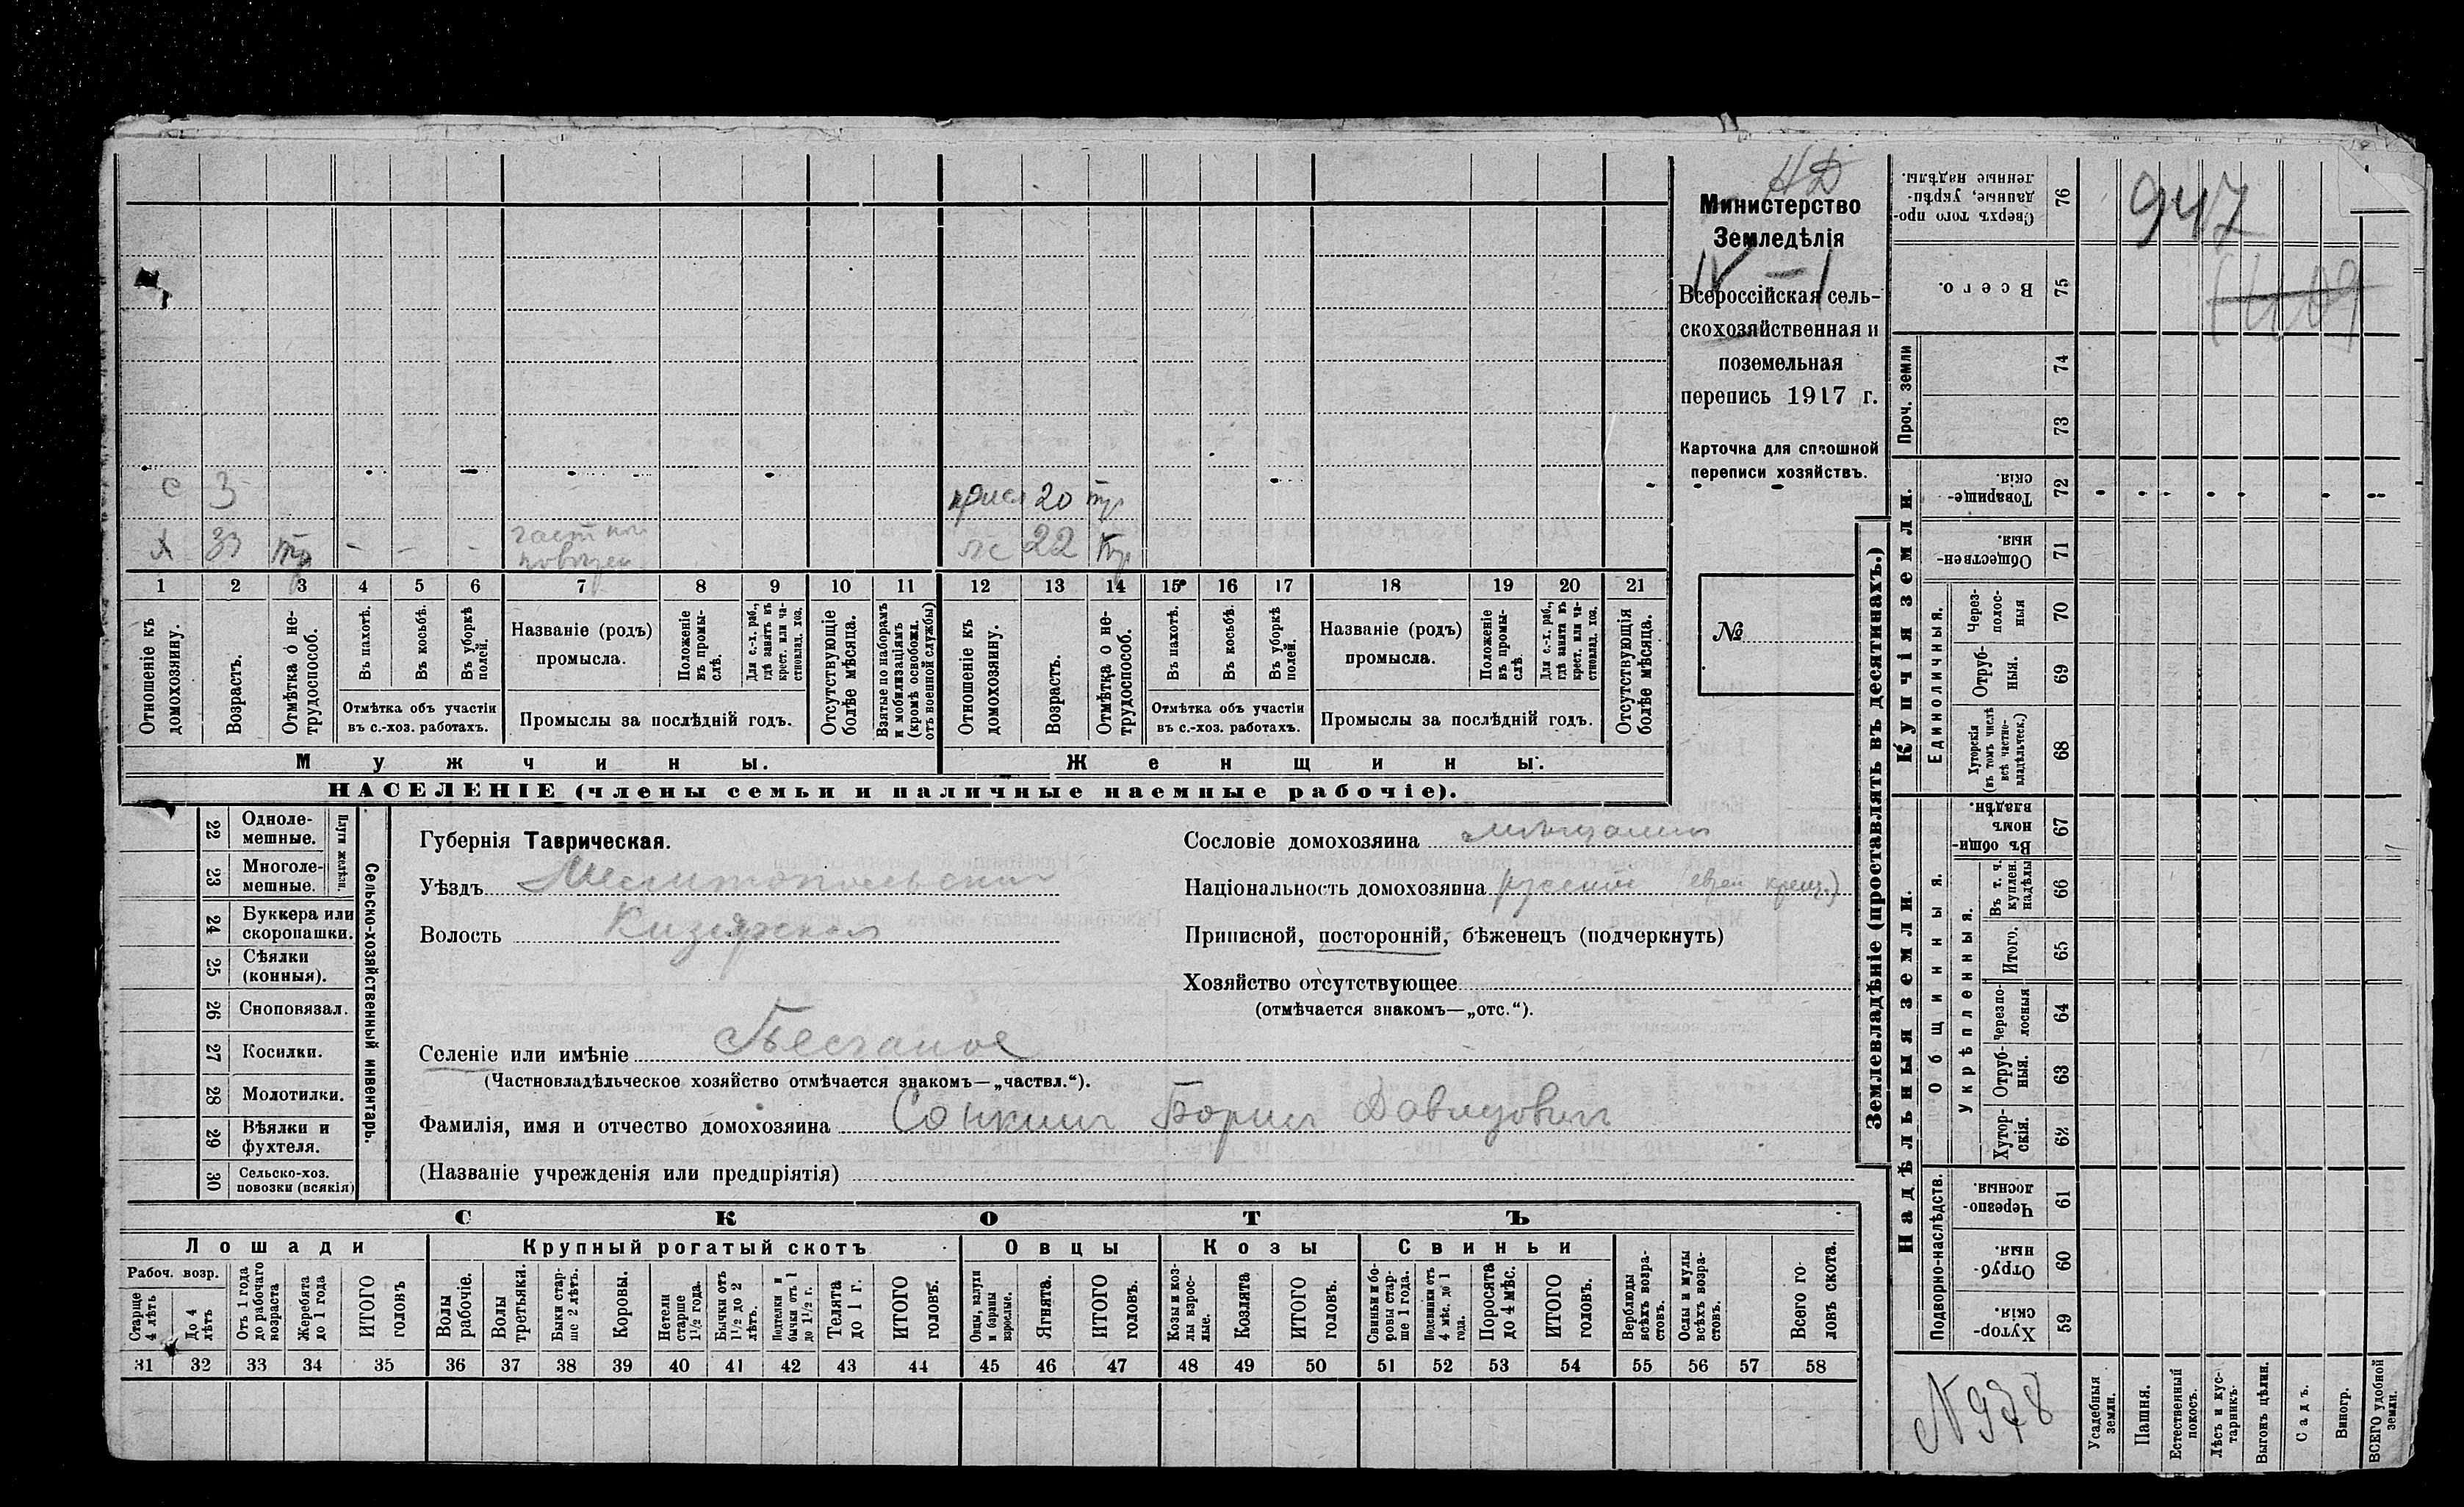 НД
Министерство
Земледѣлія
IV — 1
Всероссійская сель-
скохозяйственная и
поземельная
перепись 1917 г.
Карточка для сплошной
переписи хозяйствъ.
№
с 3
присл 20 тр
х 33 тр - - -
22 тр
1 2 3 4 5 6 7 8 9 10 11 12 13 14 15 16 17 18 19 20 21
Отношеніе къ домохозяину.
Возрастъ.
Отмѣтка о не-трудоспособ.
Въ пахотѣ.
Въ косьбѣ.
Въ уборкѣ полей.
Отмѣтка объ участіи
въ с.-хоз. работахъ.
Названіе (родъ)
промысла.
Положеніе въ промы-слѣ.
Для с.-х. раб., гдѣ занятъ въ крест. или ча-стновлад. хоз.
Промыслы за послѣдній годъ.
Отсутствующіе болѣе мѣсяца.
Взятые по наборамъ и мобилизаціямъ (кромѣ освобожд. отъ военной службы)
Отношеніе къ домохозяину.
Возрастъ.
Отмѣтка о не-трудоспособ.
Въ пахотѣ.
Въ косьбѣ.
Въ уборкѣ полей.
Отмѣтка объ участіи
въ с.-хоз. работахъ.
Названіе (родъ)
промысла.
Положеніе въ промы-слѣ.
Для с.-х. раб., гдѣ занята въ крест. или ча-стновлад. хоз.
Промыслы за послѣдній годъ.
Отсутствующія болѣе мѣсяца.
Мужчины.
Женщины.
НАСЕЛЕНІЕ (члены семьи и наличные наемные рабочіе).
22 Одноле-мешные.
23 Многоле-мешные.
Плуги желѣзн.
24 Буккера или скоропашки.
25 Сѣялки (конныя).
26 Сноповязал.
27 Косилки.
28 Молотилки.
29 Вѣялки и фухтеля.
30 Сельско-хоз. повозки (всякія)
Сельско-хозяйственный инвентарь.
Губернія Таврическая.
Уѣздъ Мелитопольский
Волость Кизиярская
Селеніе или имѣніе Песчаное
(Частновладѣльческое хозяйство отмѣчается знакомъ—„частвл.“).
Фамилія, имя и отчество домохозяина Сонкин Борис Давидович
(Названіе учрежденія или предпріятія)
Сословіе домохозяина мѣщанин
Національность домохозяина русский (еврей крещ.)
Приписной, посторонній, бѣженецъ (подчеркнуть)
Хозяйство отсутствующее
(отмѣчается знакомъ—„отс.“).
СКОТЪ
Лошади
Крупный рогатый скотъ
Овцы
Козы
Свиньи
Рабоч. возр.
Старше 4 лѣтъ
До 4 лѣтъ
Отъ 1 года до рабочаго возраста
Жеребята до 1 года
ИТОГО головъ
Волы рабочіе.
Волы третьяки.
Быки стар-ше 2 лѣтъ.
Коровы.
Нетели старше 1½ года.
Бычки отъ 1½ до 2 лѣтъ.
Подтелки и бычки отъ 1 до 1½ г.
Телята до 1 г.
ИТОГО головъ.
Овцы, валухи и бараны взрослые.
Ягнята.
ИТОГО головъ.
Козы и коз-лы взрос-лые.
Козлята
ИТОГО головъ.
Свиньи и бо-ровы стар-ше 1 года.
Подсвинки отъ 4 мѣс. до 1 года.
Поросята до 4 мѣс.
ИТОГО головъ.
Верблюды всѣхъ возра-стовъ.
Ослы и мулы всѣхъ возра-стовъ.
Всего го-ловъ скота.
31 32 33 34 35 36 37 38 39 40 41 42 43 44 45 46 47 48 49 50 51 52 53 54 55 56 57 58
Землевладѣніе (проставлять въ десятинахъ.)
947
Сверхъ того про-данные, укрѣп-ленные надѣлы. 76
Всего. 75
Проч. земли
74
73
Купчія земли.
Товарище-скія. 72
Обществен-ныя. 71
Единоличныя.
Через-полос-ныя 70
Отруб-ныя. 69
Хуторскія (въ томъ числѣ всѣ частно-владѣльческ.) 68
Надѣльныя земли.
Общинныя.
Въ общин-номъ владѣн. 67
Укрѣпленныя.
Въ т. ч. куплен. надѣлы 66
Итого. 65
Черезпо-лосныя 64
Отруб-ныя. 63
Хутор-скія. 62
Подворно-наслѣдств.
Черезпо-лосныя. 61
Отруб-ныя. 60
Хутор-скія. 59
N 978
Усадебныя земли.
Пашня.
Естественный покосъ.
Лѣсъ и кус-тарникъ.
Выгонъ цѣлин.
Садъ.
Виногр.
ВСЕГО удобной земли.